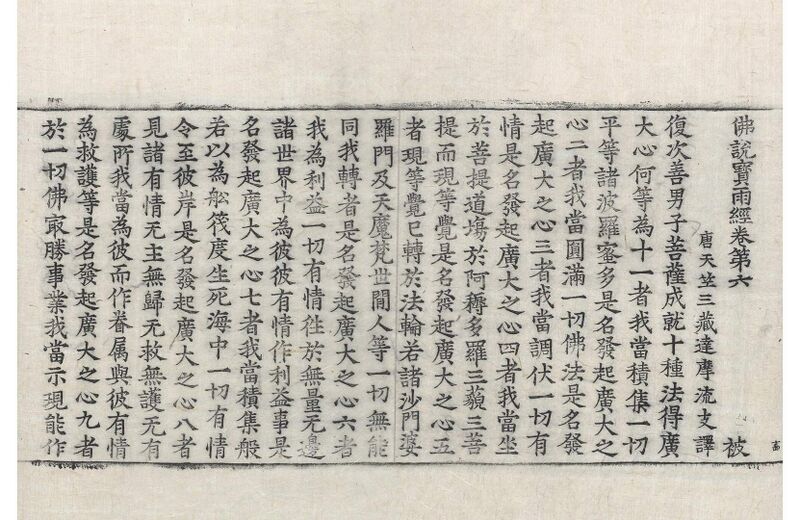 佛說寶雨經卷第六
被
唐天竺三藏達摩流支譯
復次善男子菩薩成就十種法得廣
大心何等為十一者我當積集一切
平等諸波羅蜜多是名發起廣大之
心二者我當圓滿一切佛法是名發
起廣大之心三者我當調伏一切有
情是名發起廣大之心四者我當坐
於菩提道場於阿耨多羅三藐三菩
提而現等覺是名發起廣大之心五
者現等覺已轉於法輪若諸沙門婆
羅門及天魔梵世間人等一切無能
同我轉者是名發起廣大之心六者
我為利益一切有情往於無量无邊
諸世界中為彼彼有情作利益事是
名發起廣大之心七者我當積集般
若以為舩筏度生死海中一切有情
令至彼岸是名發起廣大之心八者
見諸有情无主無歸无救無護无有
處所我當為彼而作眷属與彼有情
為救護等是名發起廣大之心九者
於一切佛㝡勝事業我當示現能作